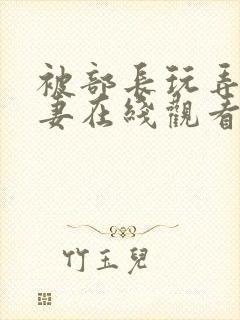 被部長玩弄
妻在綫觀看
竹玉兒